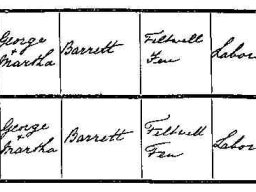 George
+
Martha
Barrett
Feltwell
Fen
Labor
George
+
Martha
Barrett
Feltwell
Fen
Labor